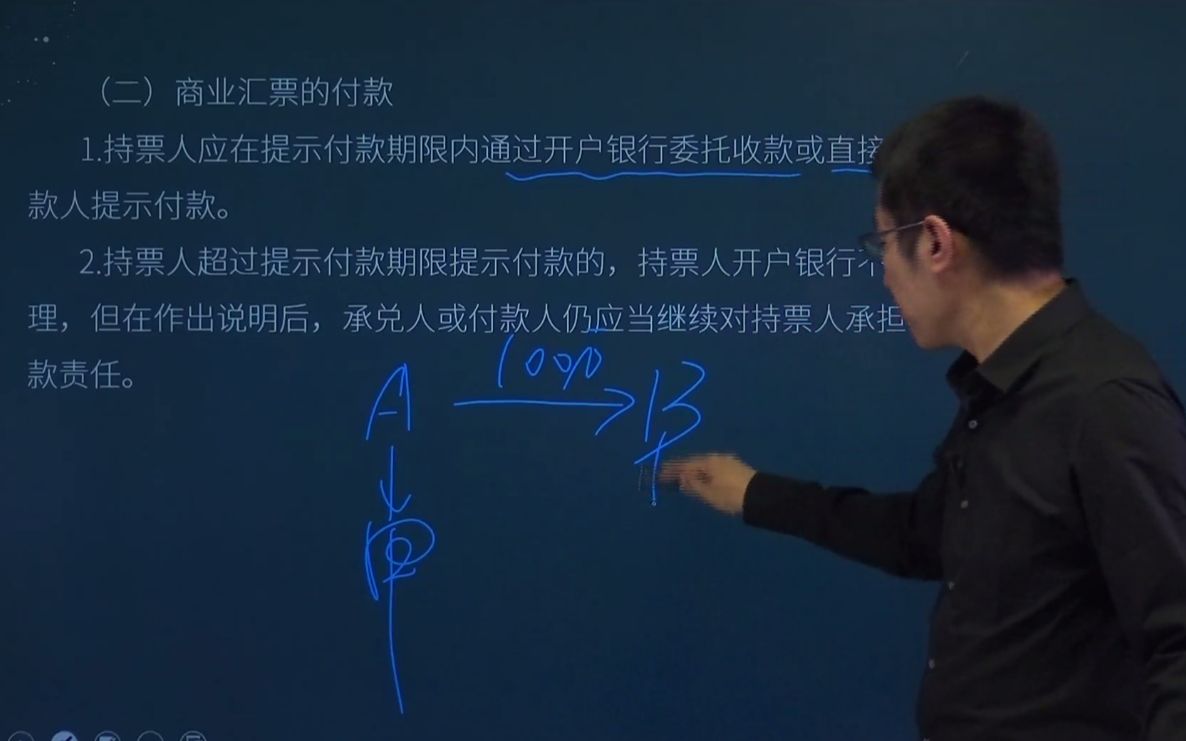 （二）商业汇票的付款
1.持票人应在提示付款期限内通过开户银行委托收款或直接
款人提示付款。
2.持票人超过提示付款期限提示付款的，持票人开户银行不
理，但在作出说明后，承兑人或付款人仍应当继续对持票人承担
款责任。
1000
A B
甲